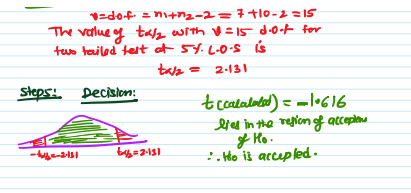 ν=d.o.f. = n1+n2-2 = 7+10-2 = 15
The value of tα/2 with ν=15 d.o.f for
two tailed test at 5% L.O.S is
tα/2 = 2.131
Steps: Decision:
t(calculated) = -1.616
lies in the region of acceptan
of Ho.
∴ Ho is accepted.
-tα/2=-2.131 tα/2=2.131